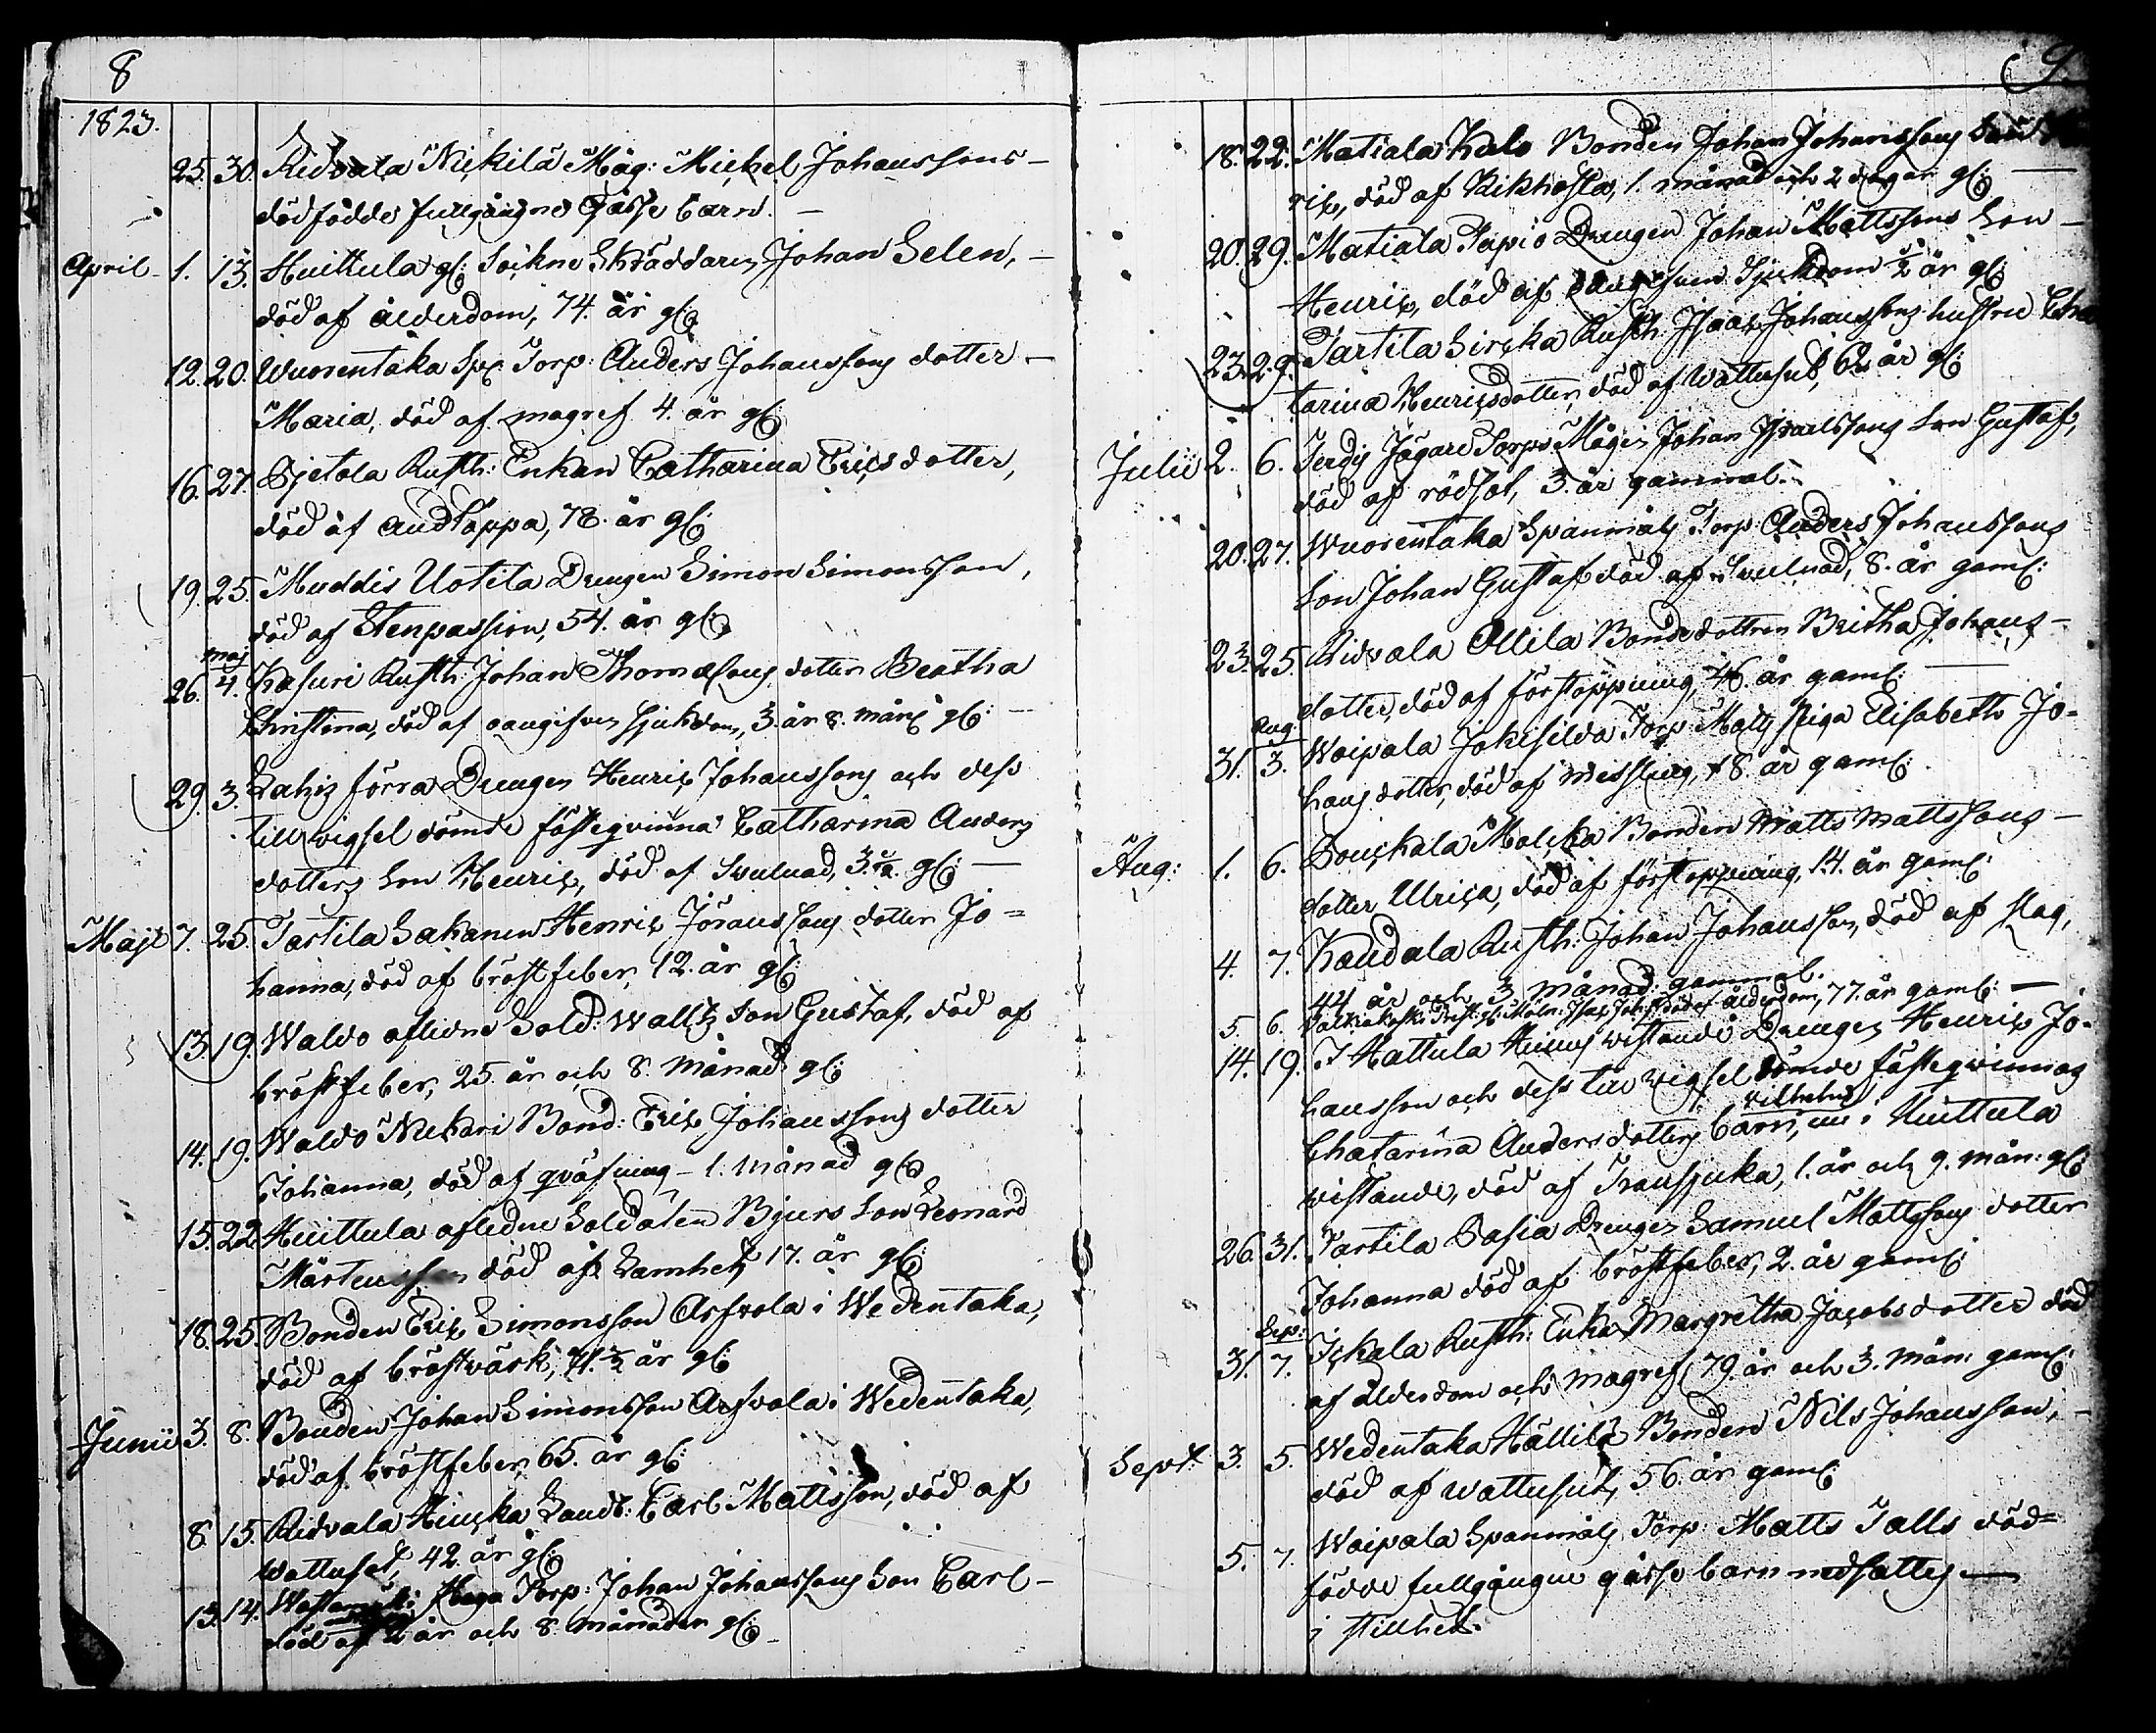 8
1823.
25. 30. Ridvala Nickilä Måg: Michel Johanssons –
dödfödde fullgångne Gåsse barn. –
April 1. 13. Huittula gl: Sockne Skräddaren Johan Selen, –
död af ålderdom, 74. år gl:
12. 20. Wuorentaka Sp: Torp: Anders Johanssons dotter –
Maria, död af magref 4. år gl:
16. 27. Sjetola Rusth: Enkan Catharina Ericsdotter,
död af andtäppa, 78. år gl:
19. 25. Muddis Uotila Drengen Simon Simonsson,
död af Stenpassion, 54. år gl:
maj
26. 4. Kasuri Rusth: Johan Thomæsons dotter Beatha
Christina, död af oangifven sjukdom, 3. år 8. mån: gl: –
29. 3. Lahis förra Drengen Henric Johanssons och dess
till wigsel dömde fästeqvinna Catharina Anders
dotters son Henric, död af Svulnad, 3. gl: –
Maji 7. 25. Tartila Sakanen Henric Jöranssons dotter Jo=
hanna, död af bröstfeber, 12. år gl:
13. 19. Waldo aflidne Sold: Walls son Gustaf, död af
bröstfeber, 25. år och 8. månad gl:
14. 19. Waldo Nukari Bond: Eric Johanssons dotter
Johanna, död af qväfning – 1. månad gl:
15. 22. Huittula afledne Soldaten Bjurs son Leonard
Mårtensson död af Lamhet, 17. år gl:
18. 25. Bonden Eric Simonsson Arfvola i Wedentaka,
död af bröstvärk, 71. ½ år gl:
Junii 3. 8. Bonden Johan Simonsson Arfvola i Wedentaka,
död af bröstfeber, 65. år gl:
8. 15. Ridvala Hincka Landb: Carl Mattsson, död af
wattusot, 42. år gl:
13. 14. Haga Torp: Johan Johanssons son Carl –
död af 2 år och 8. månader gl: –
9.
18. 22. Matiala Kulo Bonden Johan Johanssons
ric, död af Kikhosta, 1. månad och 2 dagar gl: –
20. 29. Matiala Tapio Drengen Johan Mattssons son –
Henric, död af Sjukdom ½ år gl:
23. 29. Tartila Sircka Rusth: Isaac Johanssons hustru Cha
tarina Henricsdotter, död af Wattusot, 62. år gl:
Julii 2. 6. Jerdis Jägare Torps Mågen Johan Israelssons son Gustaf,
död af rödsot, 3. år gammal.
20. 27. Wuorentaka Spanmåls Torp: Anders Johanssons
son Johan Gustaf död af Svulnad, 8. år gaml:
23. 25. Ridvala Ollila Bondedottren Britha Johans –
dotter, död af förstoppning, 46. år gaml: –
Aug:
31. 3. Woipala Jokisilda Torp: Matts piga Elisabeth Jo=
hansdotter, död af messling, 18. år gaml:
Aug: 1. 6. Bonden Matts Mattssons –
dotter Ulrica, död af förstoppning, 14. år gaml:
4. 7. Kaudala Rusth: Johan Johansson, död af slag,
44 år och 3 månad: gammal.
5. 6. Walkiakoski gl: Möln: Isac död af ålderdom, 77. år gaml: –
14. 19. I Hattula vistande Drengen Henric Jo=
hansson och dess till wigsel dömde fästeqvinnas
wilhelm
Chatarina Andersdotters barn, nu i Huittula
vistande, död af Transjuka, 1. år och 9. mån: gl:
26. 31. Tartila Pasia Drengen Samuel Mattssons dotter
Johanna död af bröstfeber, 2. år gaml:
Sep:
31. 7. Ickala Rusth: Enka Margretha Jacobsdotter död
af ålderdom och magref, 79. år och 3. mån: gaml:
Sept: 3. 5. Wedentaka Hällilä Bonden Nils Johansson, –
död af wattusot, 56. år gaml:
5. 7. Woipala Spanmåls Torp: Matts Talls död=
födde fullgångne gåsse barn nedsattes –
i stillhet.